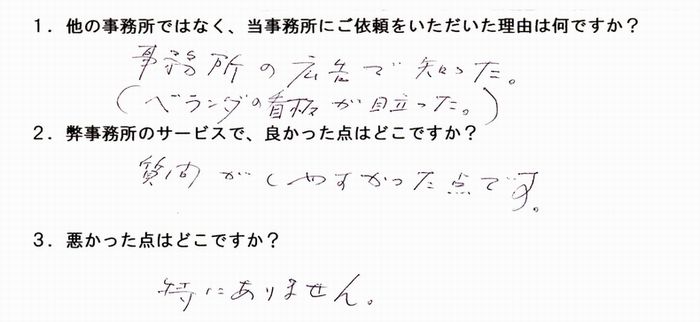 1．他の事務所ではなく、当事務所にご依頼をいただいた理由は何ですか？
事務所の広告で知った。
（ベランダの看板が目立った。）
2．弊事務所のサービスで、良かった点はどこですか？
質問がしやすかった点です。
3．悪かった点はどこですか？
特にありません。